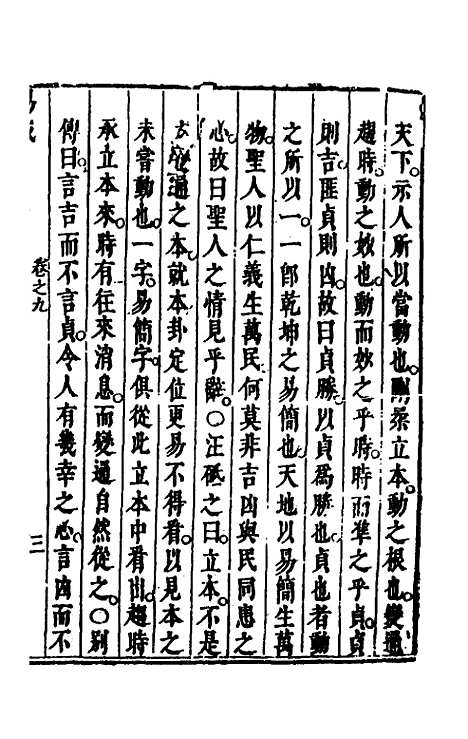 天下示人所以當動也剛柔立本動之根也變通
趨時動之妙也動而妙之乎時時而準之乎貞貞
則吉匪貞則凶故曰貞勝以貞為勝也貞也者動
之所以一一卽乾坤之易簡也天地以易簡生萬
物聖人以仁義生萬民何莫非吉凶與民同患之
心故曰聖人之情見乎辭○汪砥之曰立本不是
通之本就本卦定位更易不得看以見本之
未嘗動也一字易簡字俱從此立本中看出趨時
承立本來時有往來消息而變通自然從之○別
傳曰言吉而不言貞令人有幾幸之心言凶而不
卷之九
三